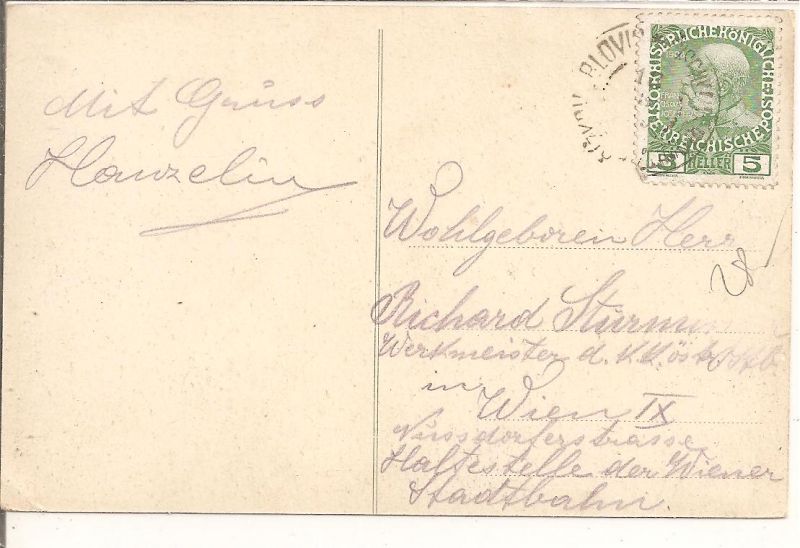 Mit Gruss
Hawzelin
BLOVIS
KAISERLICHE KÖNIGLICHE ÖSTERREICHISCHE POST
5 HELLER 5
Wohlgeboren Herr
Richard
Werkmeister d. KK. öst.
in
Wien IX
Nussdorferstrasse
Haltestelle der Wiener
Stadtbahn.